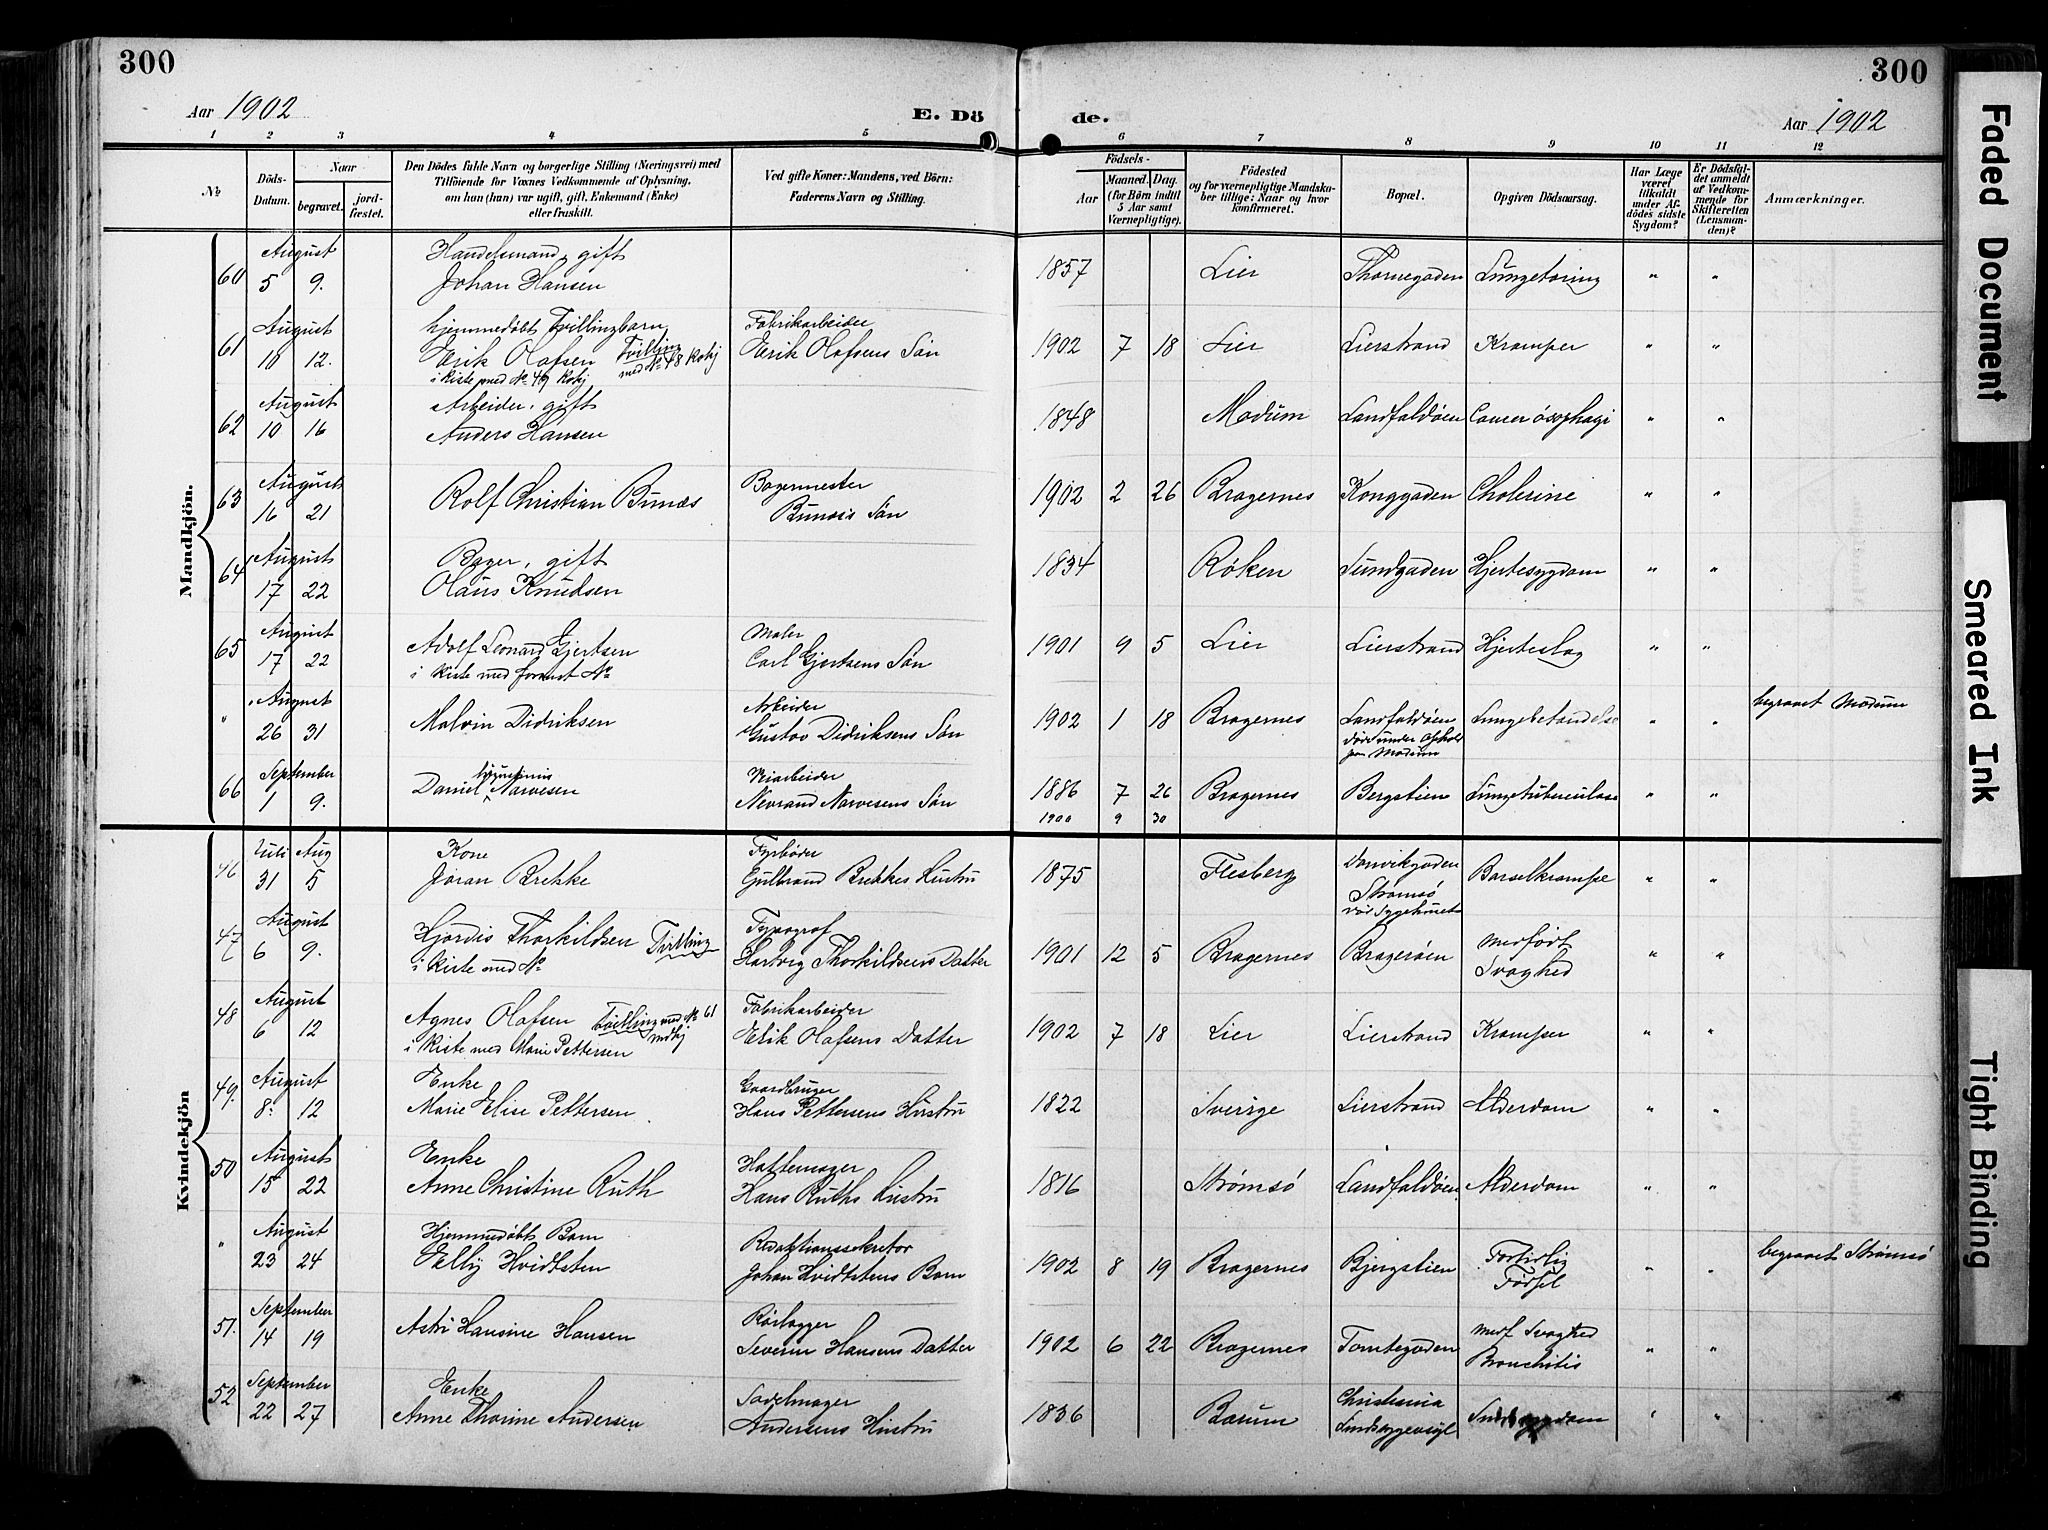 300
300
Aar 1902
E. Dö
de.
Aar 1902
1 2 3 4 5 6 7 8 9 10 11 12
№
Döds-Datum.
Naar
begravet.
jord-fæstet.
Den Dödes fulde Navn og borgerlige Stilling (Næringsvei) med
Tilföiende for Voxnes Vedkommende af Oplysning,
om han (hun) var ugift, gift, Enkemand (Enke)
eller fraskilt.
Ved gifte Koner: Mandens, ved Börn:
Faderens Navn og Stilling.
Födsels-
Aar
Maaned. Dag.
(for Börn indtil
5 Aar samt
Værnepligtige).
Födested
og for værnepligtige Mandska-
ber tillige: Naar og hvor
konfirmeret.
Bopæl.
Opgiven Dödsaarsag.
Har Læge
været
tilkaldt
under Af-
dödes sidste
Sygdom?
Er Dödsfal-
det anmeldt
af Vedkom-
mende for
Skifteretten
(Lensman-
den)?
Anmærkninger.
Mandkjön.
60 August 5 9. Handelsmand, gift
Johan Hansen 1857 Lier Thornegaden Lungetæring " "
61 August 10 12. hjemmedøbt Tvillingbarn
Erik Olafsen Tvilling med № 48 Kvkj
i Kiste med № 49 Kvkj
Fabrikarbeider
Erik Olafsens Søn 1902 7 18 Lier Lierstrand Kramper " "
62 August 10 16 Arbeider, gift
Anders Hansen 1848 Modum Landfaldøen Cancer øsophagi " "
63 August 16 21 Rolf Christian Bunæs
Bagermester
Bunæs Søn 1902 2 26 Bragernes Konggaden Cholerine " "
64 August 17 22 Bager, gift
Olaus Knudsen 1834 Røken Sundgaden Hjertesygdom " "
65 August 17 22 Adolf Leonard Gjertsen
i Kiste med forrest №
Maler
Carl Gjertsens Søn 1901 9 5 Lier Lierstrand Hjerteslag " "
" August 26 31 Malvin Didriksen
Arbeider
Gustav Didriksens Søn 1902 1 18 Bragernes Landfaldøen
død under Ophold
paa Modum
Lungebetændelse " " begravet Modum
66 September 1 9. Daniel Narvesen
Veiarbeider
Narvesens Søn 1886 7 26 Bragernes Bergstien Lungetuberculose " "
1900 9 30
Kvindekjön
46 Juli 31 Aug 5 Kone
Jøran Brekke
Fyrbøder
Gulbrand Brekkes Hustru 1875 Flesberg Danvikgaden
Strømsø
død Sygehuset
Barselkrampe " "
47 August 6 9. Hjørdis Thorkildsen Tvilling
i Kiste med №
Typograf
Hartvig Thorkildsens Datter 1901 12 5 Bragernes Bragerøen Medfødt
Svaghed " "
48 August 6 12 Agnes Olafsen Tvilling med № 61 Mdkj
i Kiste med Marie Pettersen
Fabrikarbeider
Erik Olafsens Datter 1902 7 18 Lier Lierstrand Kramper " "
49. August 8. 12 Enke
Marie Elise Pettersen
Gaardbruger
Hans Pettersens Hustru 1822 Sverige Lierstrand Alderdom " "
50 August 15 22 Enke
Anne Christine Ruth
Hattemager
Hans Ruths Hustru 1816 Strømsø Landfaldøen Alderdom " "
" August 23 24 Hjemmedøbt Barn
Elly Hvidtsten
Redaktionssekretær
Johan Hvidtstens Barn 1902 8 19 Bragernes Bjergstien Fortidlig
Fødsel " " begravet Strømsø
51. September 14 19 Astri Hansine Hansen
Rørlægger
Severin Hansens Datter 1902 6 22 Bragernes Tomtegaden Medf Svaghed
Bronchitis " "
52 September 22 27 Enke
Anne Thorine Andersen
Sadelmager
Andersens Hustru 1836 Bærum Christiania
Sindssygeasyl
Sindssygdom " "
Faded Document
Smeared Ink
Tight Binding